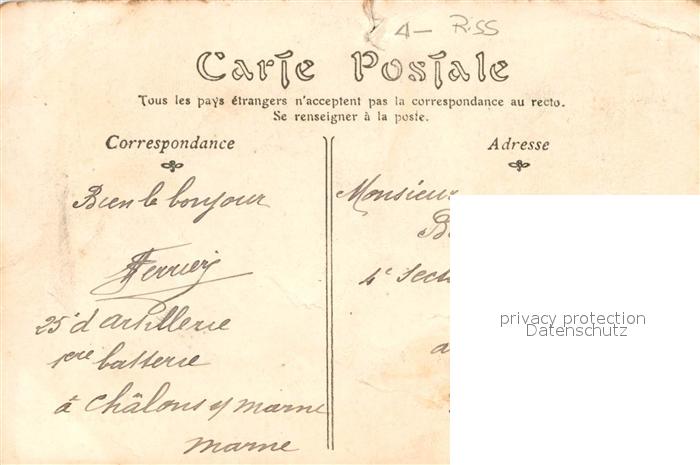 A — Riss
Carte Postale
Tous les pays étrangers n'acceptent pas la correspondance au recto.
Se renseigner à la poste.
Correspondance
Bien le bonjour
25e d'artillerie
1ere batterie
à Châlons s/ marne
marne
Adresse
Monsieur
4e Sect
privacy protection
Datenschutz